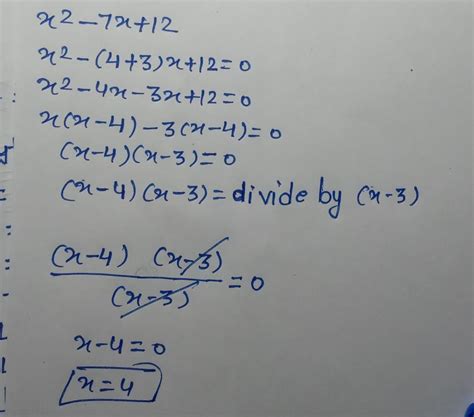 x² - 7x + 12
x² - (4+3)x + 12 = 0
x² - 4x - 3x + 12 = 0
x(x-4) - 3(x-4) = 0
(x-4)(x-3) = 0
(x-4)(x-3) = divide by (x-3)
(x-4) (x-3)
(x-3) = 0
x-4 = 0
x = 4